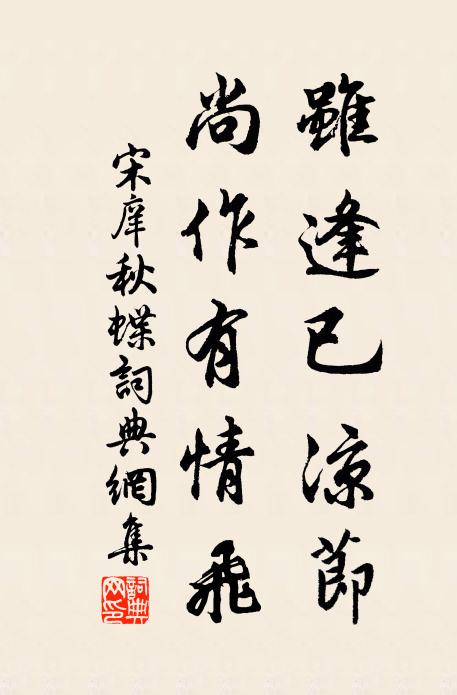 雖逢已涼節
尚作有情飛
宋庠秋蝶詞典網集
詞典网印